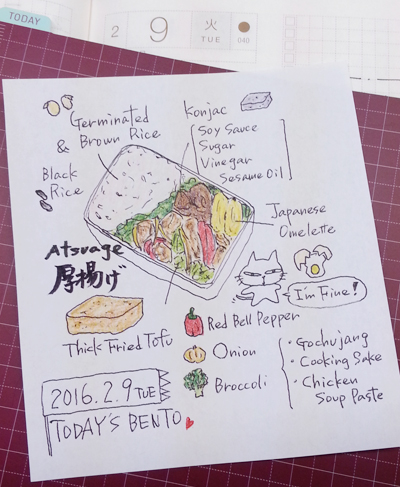 TODAY
2
9
火
TUE
040
Germinated
& Brown Rice
Black
Rice
Konjac
Soy Sauce
Sugar
Vinegar
Sesame Oil
Japanese
Omelette
Atsuage
厚揚げ
I'm Fine!
Thick Fried Tofu
Red Bell Pepper
Onion
Broccoli
・Gochujang
・Cooking Sake
・Chicken
Soup Paste
2016.2.9 TUE
TODAY'S BENTO